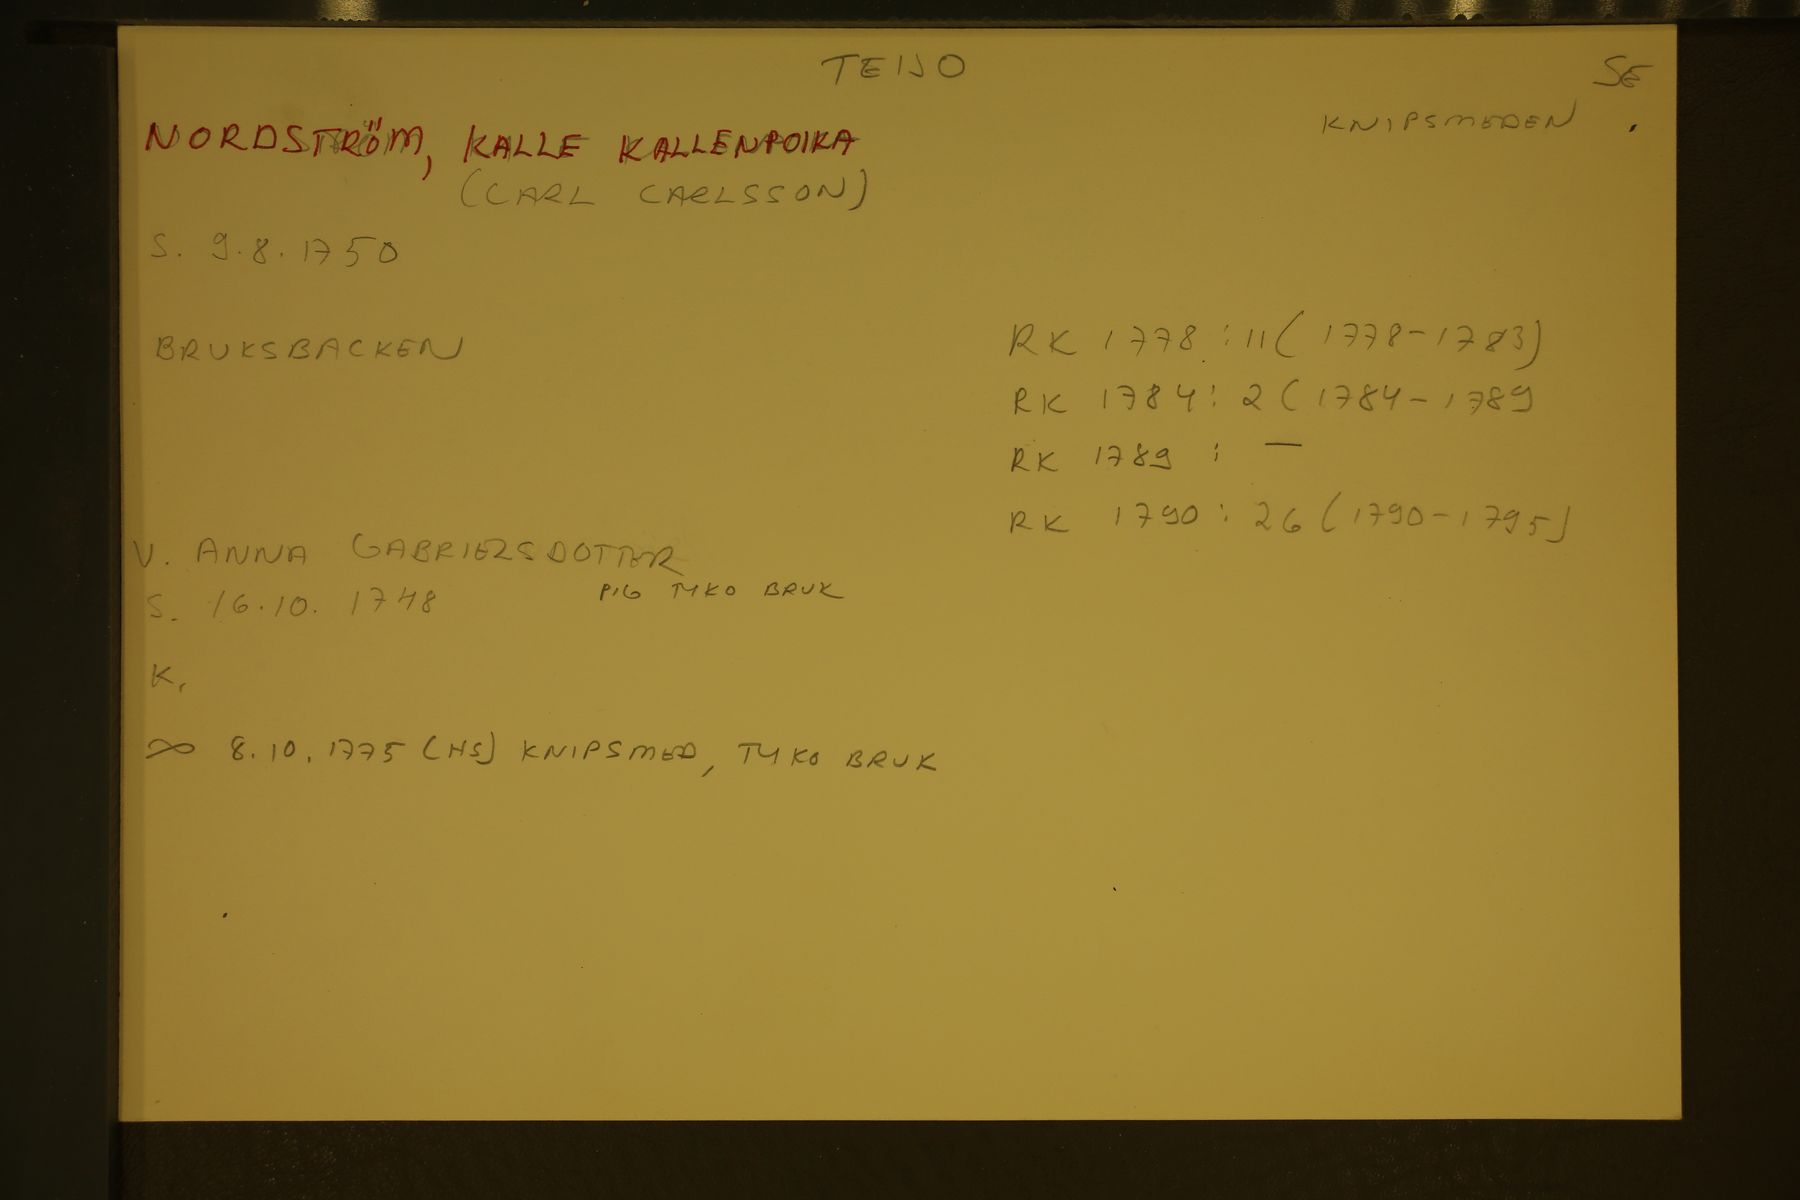 TEIJO
SE
KNIPSMEDEN .
NORDSTRÖM, KALLE KALLENPOIKA
(CARL CARLSSON)
S. 9.8.1750
BRUKSBACKEN
RK 1778 : 11 ( 1778-1783)
RK 1784 : 2 ( 1784-1789
RK 1789 : —
RK 1790 : 26 (1790-1795)
V. ANNA GABRIELSDOTTER
S. 16.10. 1748
PIG TYKO BRUK
K.
∞ 8.10.1775 (HS) KNIPSMED, TYKO BRUK